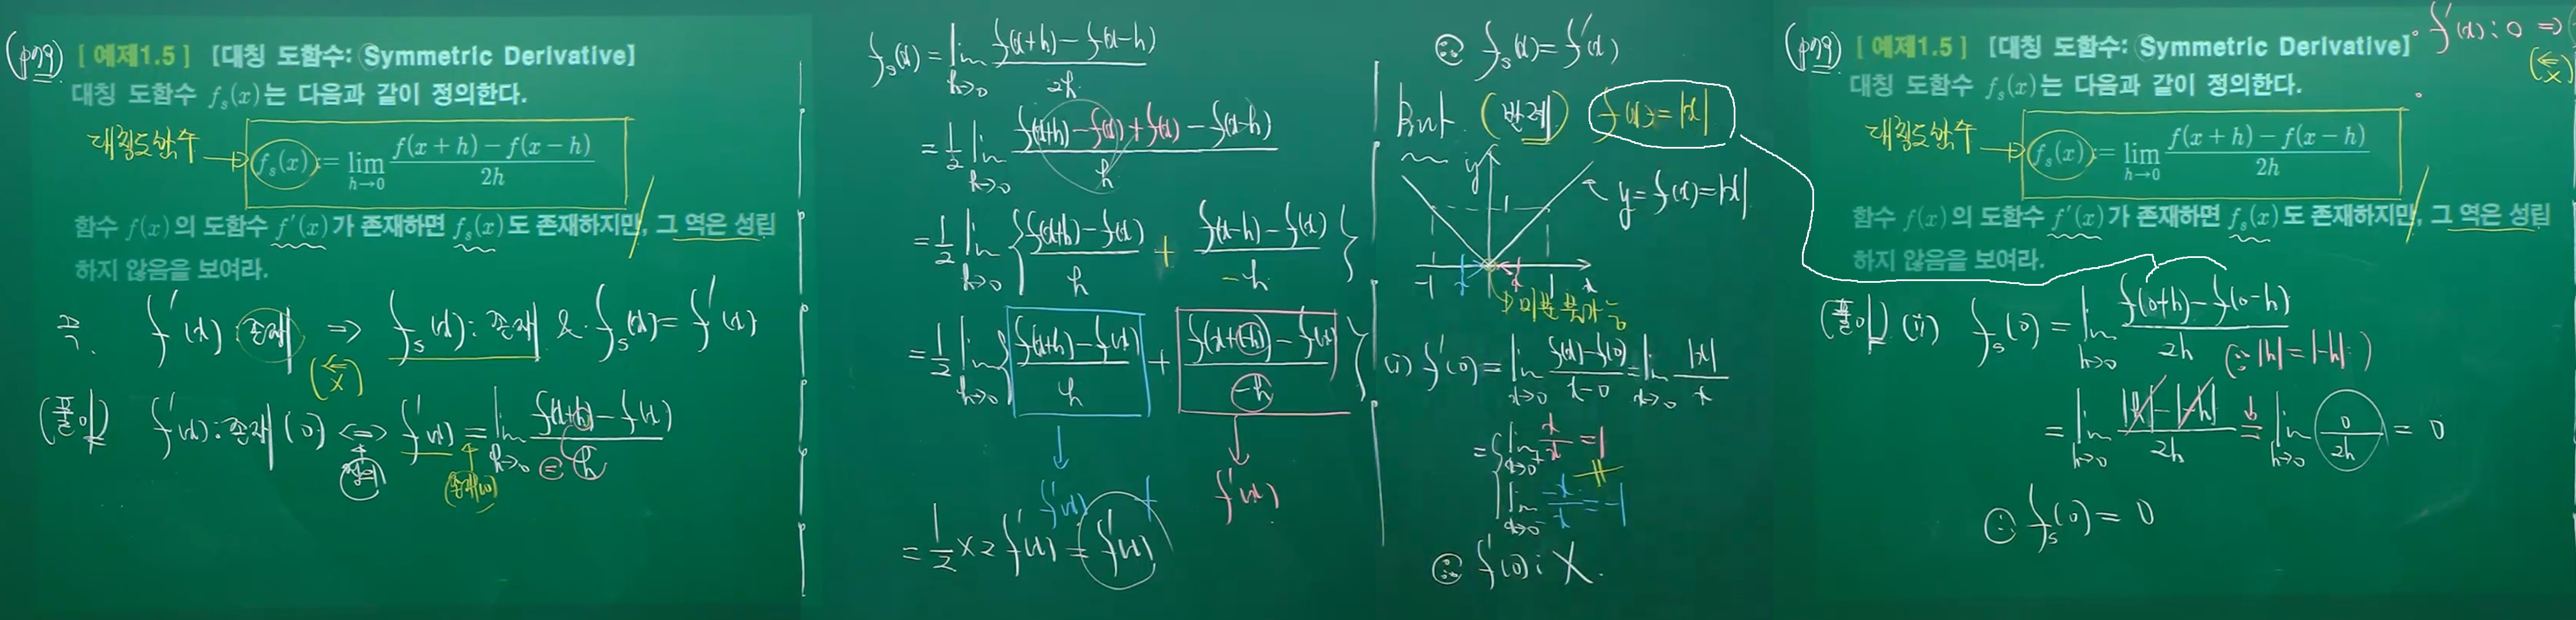 (p79) [ 예제1.5 ] [대칭 도함수: Symmetric Derivative]
대칭 도함수 f_s(x)는 다음과 같이 정의한다.
대칭도함수 → f_s(x) := lim_{h→0} (f(x+h) − f(x−h))/2h
함수 f(x)의 도함수 f′(x)가 존재하면 f_s(x)도 존재하지만, 그 역은 성립
하지 않음을 보여라.
즉. f′(x) 존재 ⇒ f_s(x) : 존재 & f_s(x) = f′(x)
(⇐ X)
(풀이) f′(x) : 존재 (0) ⇔ f′(x) = lim_{h→0} (f(x+h) − f(x))/h
(정의)
f_s(x) = lim_{h→0} (f(x+h) − f(x−h))/2h
= 1/2 lim_{h→0} (f(x+h) − f(x) + f(x) − f(x−h))/h
= 1/2 lim_{h→0} { (f(x+h) − f(x))/h + (f(x−h) − f(x))/−h }
= 1/2 lim_{h→0} { (f(x+h) − f(x))/h + (f(x+(−h)) − f(x))/−h }
↓ ↓
f′(x) + f′(x)
= 1/2 × 2 f′(x) = f′(x)
∴ f_s(x) = f′(x)
But. (반례) f(x) = |x|
y
y = f(x) = |x|
1
−1 x x 1 x
→ 미분 불가능
(i) f′(0) = lim_{x→0} (f(x) − f(0))/(x − 0) = lim_{x→0} |x|/x
= { lim_{x→0+} x/x = 1
≠
lim_{x→0−} −x/x = −1
∴ f′(0) : X.
(p79) [ 예제1.5 ] [대칭 도함수: Symmetric Derivative]
· f′(x) : 0 ⇒
(⇐ X)
대칭 도함수 f_s(x)는 다음과 같이 정의한다.
대칭도함수 → f_s(x) := lim_{h→0} (f(x+h) − f(x−h))/2h
함수 f(x)의 도함수 f′(x)가 존재하면 f_s(x)도 존재하지만, 그 역은 성립
하지 않음을 보여라.
(풀이) (ii) f_s(0) = lim_{h→0} (f(0+h) − f(0−h))/2h
(∵ |h| = |−h|)
= lim_{h→0} (|h| − |−h|)/2h = lim_{h→0} 0/2h = 0
∴ f_s(0) = 0